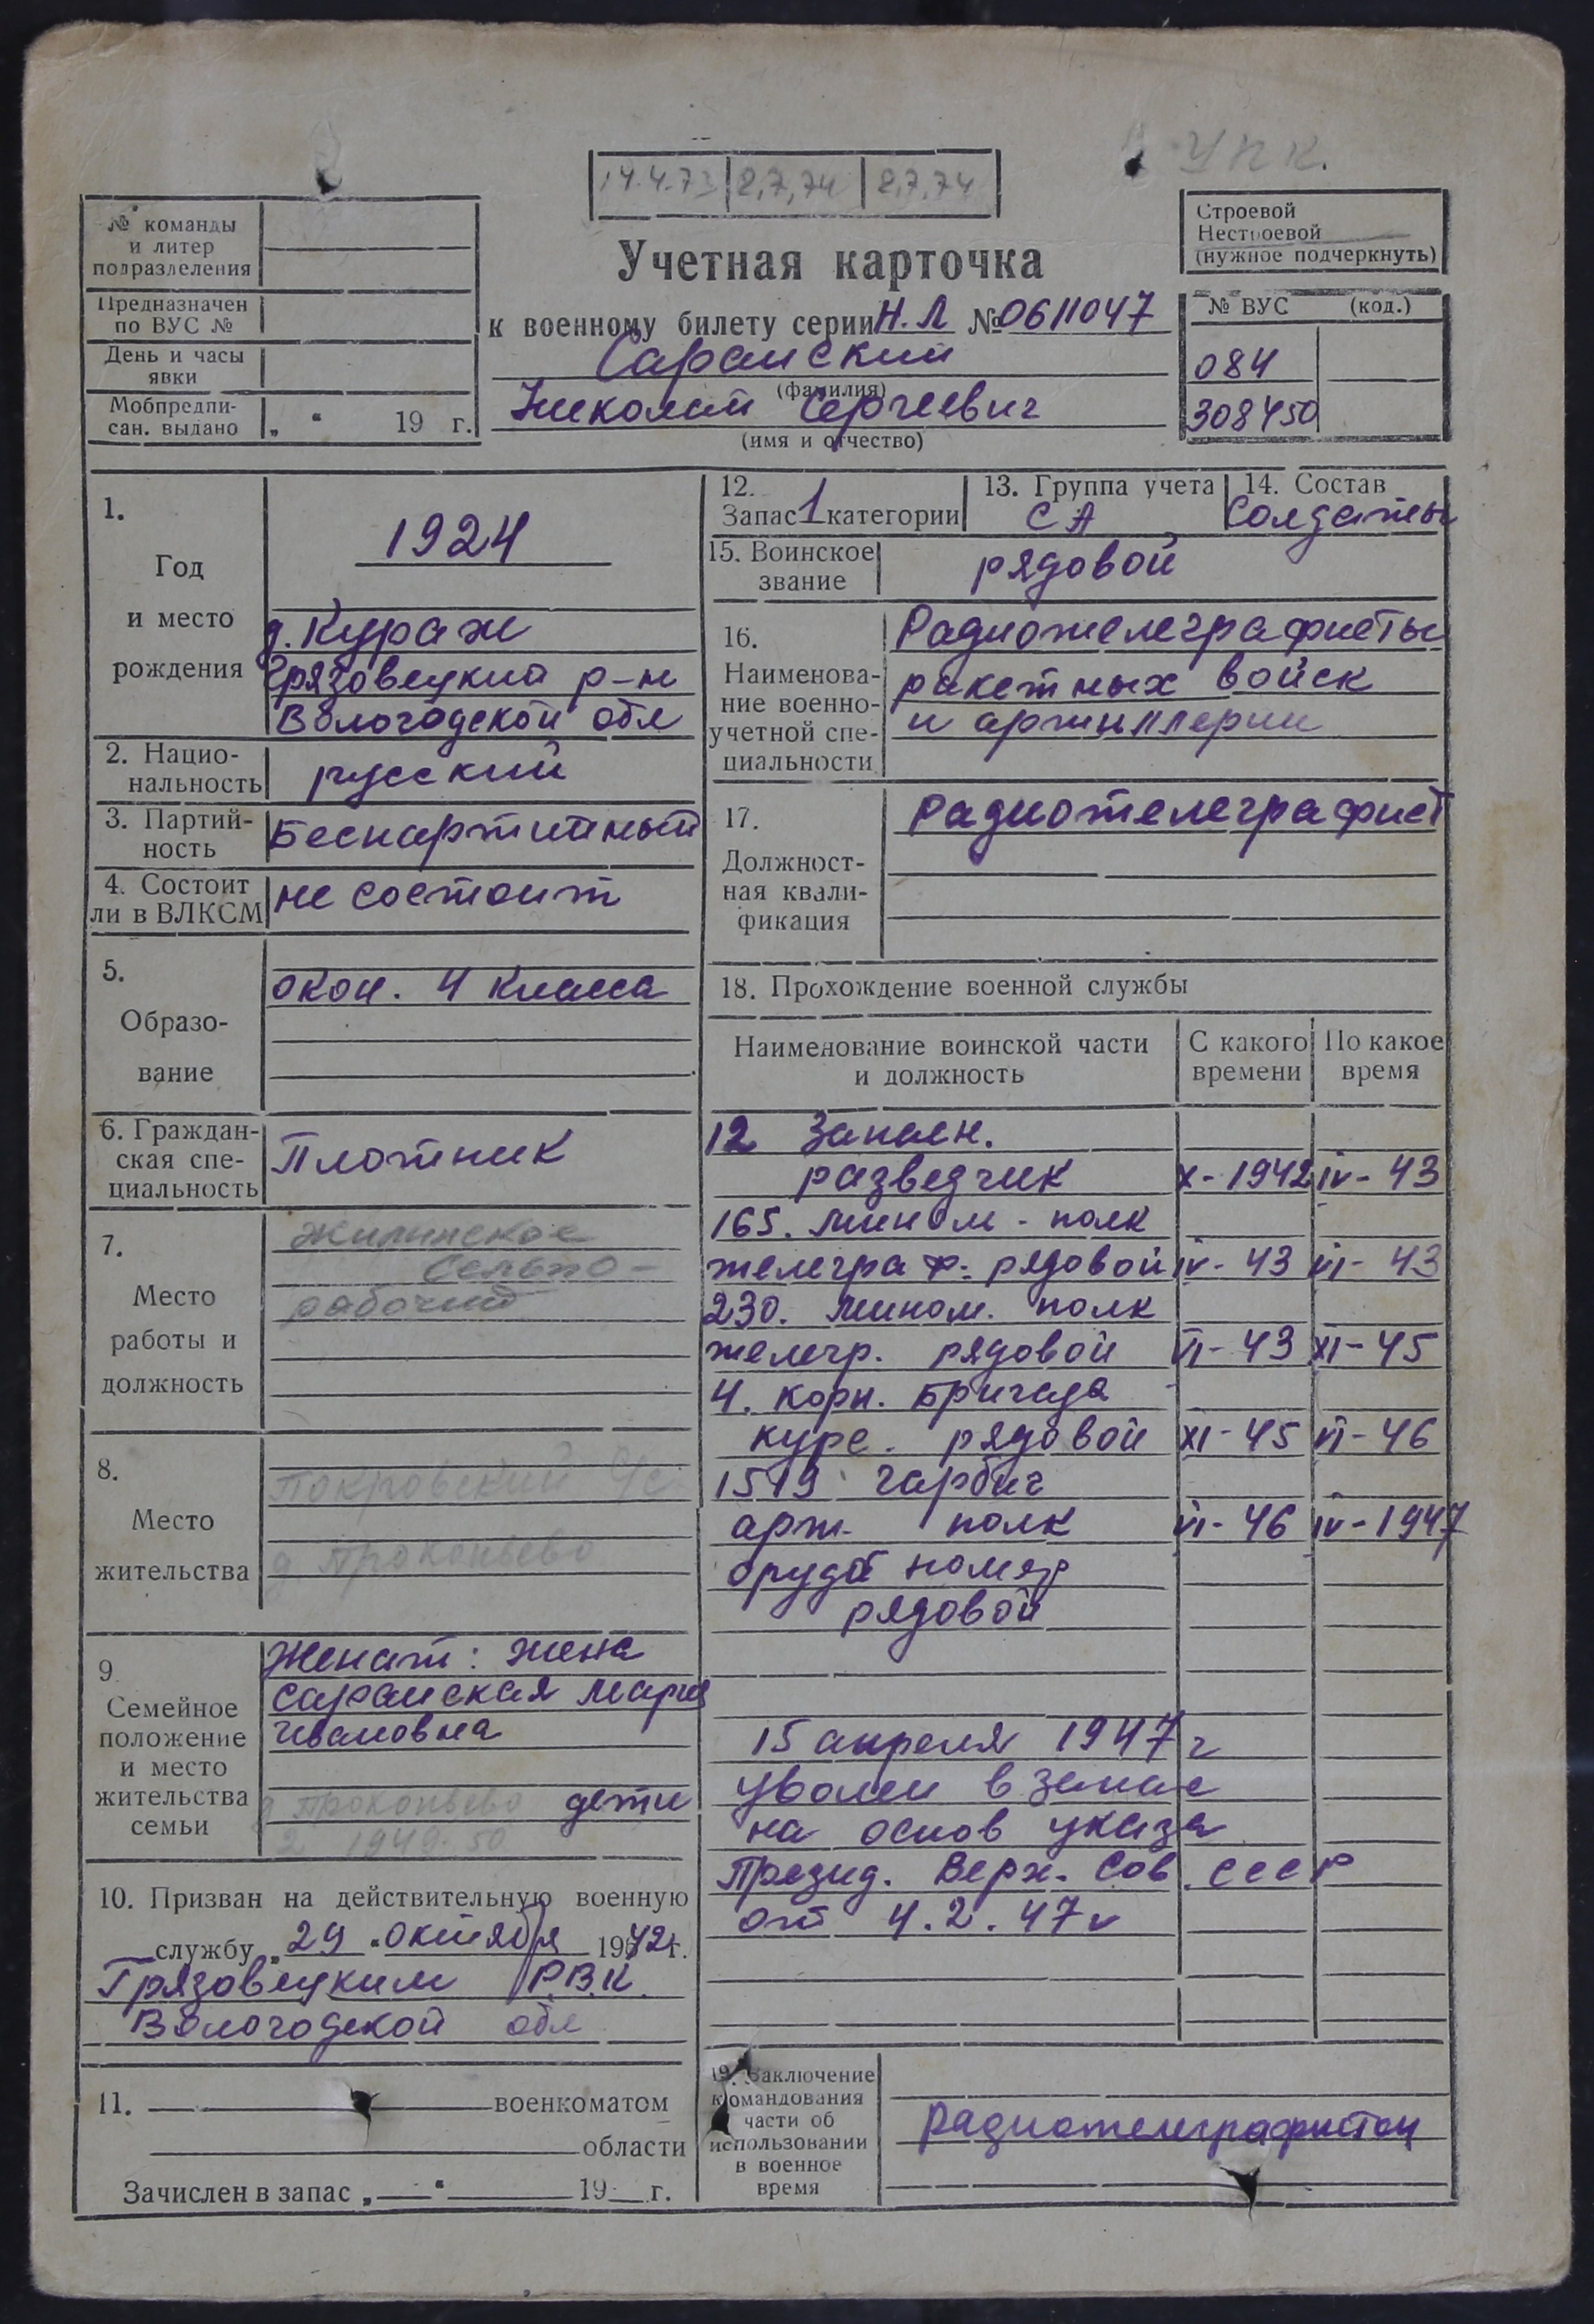 У П К.
14.4.73 2,7,74 2,7,74
№ команды
и литер
подразделения
Предназначен
по ВУС №
День и часы
явки
Мобпредпи-
сан. выдано „ “ 19 г.
Учетная карточка
к военному билету серии Н.Л №0611047
Сараиский
(фамилия)
Николай Сергеевич
(имя и отчество)
Строевой
Нестроевой
(нужное подчеркнуть)
№ ВУС (код.)
084
308450
1.
Год
и место
рождения
1924
д. Кураж
Грязовецкий р-н
Вологодской обл
2. Нацио-
нальность
русский
3. Партий-
ность
Беспартийный
4. Состоит
ли в ВЛКСМ
не состоит
5.
Образо-
вание
окон. 4 класса
6. Граждан-
ская спе-
циальность
Плотник
7.
Место
работы и
должность
Жилинское
Сельпо-
рабочий
8.
Место
жительства
Покровский с/с
д Прокопьево
9
Семейное
положение
и место
жительства
семьи
Женат: жена
Сараиская Мария
Ивановна
д Прокопьево дети
2 1949. 50
10. Призван на действительную военную
службу „29“ октября 1942г.
Грязовецким Р.В.К.
Вологодской обл
11. военкоматом
области
Зачислен в запас „ “ 19 г.
12.
Запас 1 категории
13. Группа учета
СА
14. Состав
Солдаты
15. Воинское
звание
рядовой
16.
Наименова-
ние военно-
учетной спе-
циальности
Радиотелеграфисты
ракетных войск
и артиллерии
17.
Должност-
ная квали-
фикация
Радиотелеграфист
18. Прохождение военной службы
Наименование воинской части
и должность
С какого
времени
По какое
время
12 Запасн.
разведчик X-1942 IV-43
165. Мином-полк
телеграф. рядовой IV-43 VI-43
230. Мином. полк
телегр. рядовой VI-43 XI-45
4. корп. бригада
курс. рядовой XI-45 VI-46
1519 гарбич
арт. полк VI-46 IV-1947
оруд номер
рядовой
15 апреля 1947 г
уволен в запас
на основ указа
Презид. Верх. Сов. СССР
от 4.2.47г
19. Заключение
командования
части об
использовании
в военное
время
радиотелеграфистом